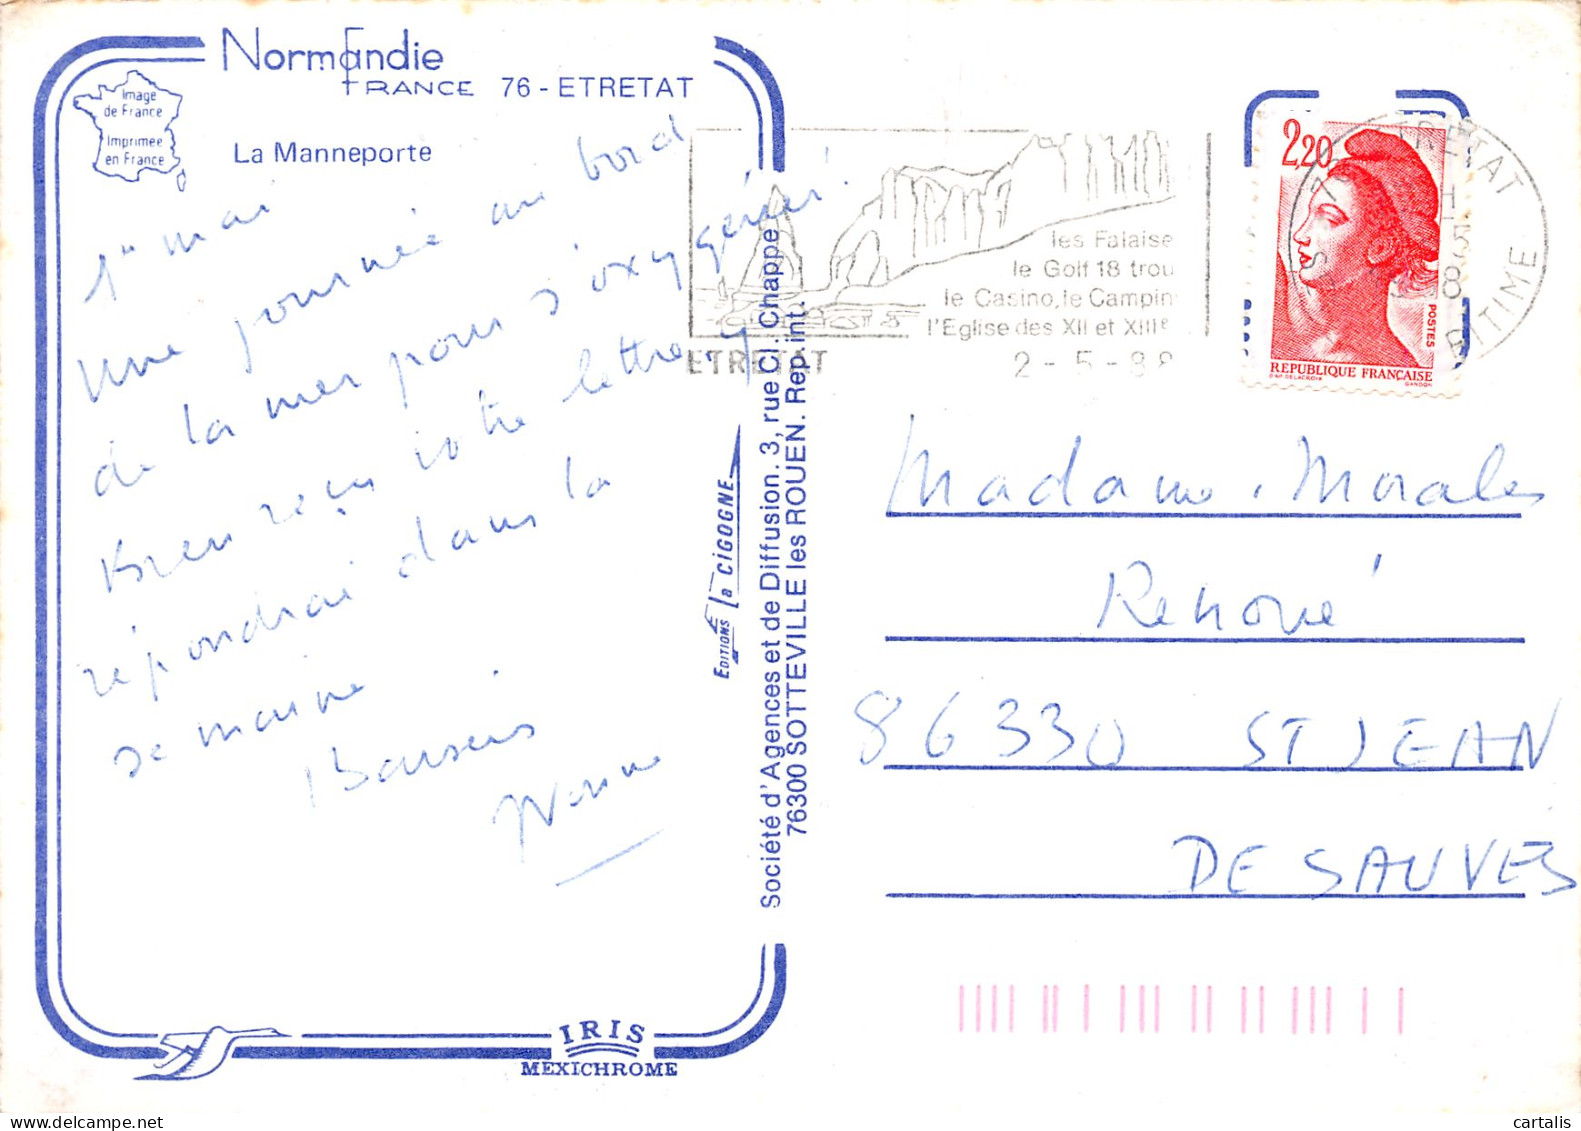 Normandie
FRANCE 76 - ETRETAT
Image
de France
Imprimée
en France
La Manneporte
1er mai
Une journée au bord
de la mer pour s'oxygéner!
Bien reçu votre lettre, y
répondrai dans la
semaine
Baisers
Yvonne
EDITIONS la CIGOGNE
Société d'Agences et de Diffusion. 3, rue Cl. Chappe
76300 SOTTEVILLE les ROUEN. Rep. int.
les Falaise
le Golf 18 trou
le Casino, le Campin
l'Eglise des XII et XIIIe
ETRETAT
2 - 5 - 88
2,20
POSTES
REPUBLIQUE FRANÇAISE
D'AP. DELACROIX GANDON
ETRETAT
Madame Morales
Renoué
86330 ST JEAN
DE SAUVES
IRIS
MEXICHROME
cartalis